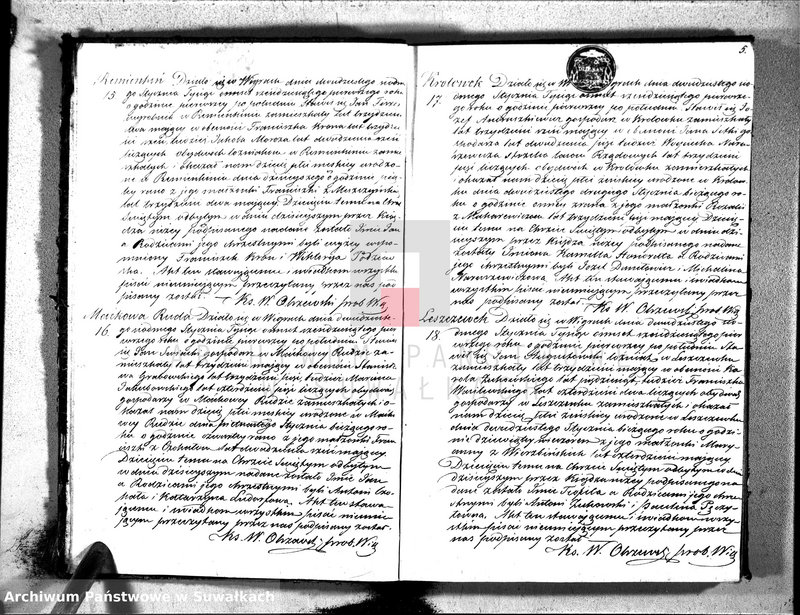 Remientiń Działo się w Wigrach dnia dwudziestego siódm-
15. go Stycznia Tysiąc ośmset sześćdziesiątego pierwszego roku
o godzinie pierwszej po południu Stawił się Jan
w Remientiniu zamieszkały lat trzydzieści
dwa mający w obecności Franciszka Krona lat trzydzie-
ści sześć tudzież Jakóba Moroza lat dwadzieścia
liczących obydwóch w Remientiniu zami-
eszkałych i okazał nam dziecię płci męskiej urodzo-
ne w Remientiniu dnia dzisiejszego o godzinie pią-
tej rano z jego małżonki Franciszki z
lat trzydzieści dwa mającej Dziecięciu temu na Chrzcie
Świętym odbytym w dniu dzisiejszym przez Księ-
dza niżej podpisanego nadane zostało Imie Jan
a Rodzicami jego chrzestnymi byli wyżej wspo-
mniony Franciszek Kron i Wiktorya
Akt ten stawającemu i świadkom wszystkim
pisać nieumiejącym przeczytany przez nas pod-
pisany został. — Ks. W. Obrzewski prob. Wig
Maćkowa Ruda Działo się w Wigrach dnia dwudzieste-
16. go siódmego Stycznia Tysiąc ośmset sześćdziesiątego pier-
wszego roku o godzinie pierwszej po południu. Stawił
się Jan gospodarz w Maćkowej Rudzie za-
mieszkały lat trzydzieści mający w obecności Stanisła-
wa Grabowskiego lat trzydzieści pięć tudzież Marcina
Jakubowskiego lat czterdzieści pięć liczących obydwóch
gospodarzy w Maćkowej Rudzie zamieszkałych i o-
kazał nam dziecię płci męskiej urodzone w Maćko-
wej Rudzie dnia piętnastego Stycznia bieżącego ro-
ku o godzinie czwartej rano z jego małżonki Fran-
ciszki z lat dwadzieścia sześć mającej
Dziecięciu temu na Chrzcie Świętym odbytym
w dniu dzisiejszym nadane zostało Imie Jan
a Rodzicami jego chrzestnymi byli Antoni
i Katarzyna Akt ten stawa-
jącemu i świadkom wszystkim pisać nieumie-
jącym przeczytany przez nas podpisany został.
Ks. W. Obrzewski prob. Wig
5.
Królówek Działo się w Wigrach dnia dwudziestego sió-
17. dmego Stycznia Tysiąc ośmset sześćdziesiątego pierwsze-
go roku o godzinie pierwszej po południu. Stawił się Jó-
zef Andruszkiewicz gospodarz w Królówku zamieszkały
lat trzydzieści sześć mający w obecności Jana go-
spodarza lat dwadzieścia pięć tudzież Wojciecha Naru-
szewicza strzelca lasów Rządowych lat trzydzieści
pięć liczących obydwóch w Królówku zamieszkałych
i okazał nam dziecię płci żeńskiej urodzone w Królów-
ku dnia dwudziestego drugiego Stycznia bieżącego ro-
ku o godzinie ósmej z rana z jego małżonki Rozalii
z Makarewiczów lat trzydzieści pięć mającej Dziecię-
ciu temu na Chrzcie Świętym odbytym w dniu dzi-
siejszym przez Księdza niżej podpisanego nadane
zostały Imiona Kamilla Honoratta a Rodzicami
jego chrzestnymi byli Józef Danilewicz i Michalina
Naruszewiczowa Akt ten stawającemu i świadkom
wszystkim pisać nieumiejącym przeczytany przez
nas podpisany został — Ks. W. Obrzewski prob. Wig
Leszczewek Działo się w Wigrach dnia dwudziestego sió-
18. dmego Stycznia Tysiąc ośmset sześćdziesiątego pier-
wszego roku o godzinie pierwszej po południu Sta-
wił się Jan w Leszczewku
zamieszkały lat trzydzieści mający w obecności Ka-
rola Żukowskiego lat pięćdziesiąt, tudzież Franciszka
Wasilewskiego lat czterdzieści dwa liczących obydwóch
gospodarzy w Leszczewku zamieszkałych i okazał
nam dziecię płci żeńskiej urodzone w Leszczewku
dnia dwudziestego Stycznia bieżącego roku o godzi-
nie dziewiątej wieczorem z jego małżonki Mary-
anny z Wierzbińskich lat czterdzieści mającej
Dziecięciu temu na Chrzcie Świętym odbytym w dniu
dzisiejszym przez Księdza niżej podpisanego na-
dane zostało Imie Teofila a Rodzicami jego chrze-
stnymi byli Antoni Żukowski i Paulina
Akt ten stawającemu i świadkom wszy-
stkim pisać nieumiejącym przeczytany przez
nas podpisany został —
Ks. W. Obrzewski prob. Wig
Archiwum Państwowe w Suwałkach